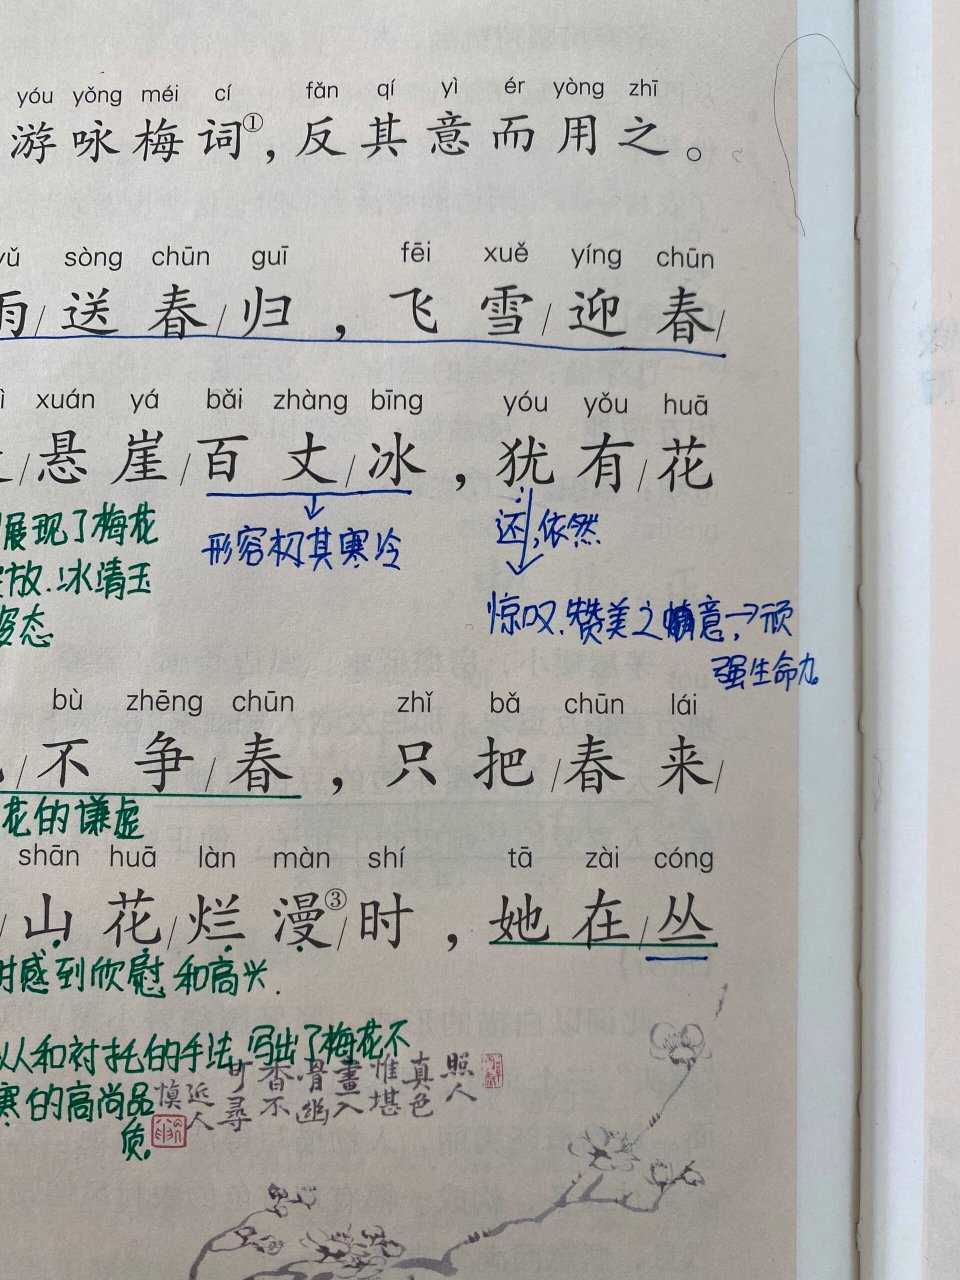 yóu yǒng méi cí fǎn qí yì ér yòng zhī
游咏梅词①，反其意而用之。
yǔ sòng chūn guī fēi xuě yíng chūn
雨/送春/归，飞雪/迎春/
xuán yá bǎi zhàng bīng yóu yǒu huā
/悬崖/百丈/冰，犹有/花
展现了梅花
还,依然
形容极其寒冷
放.冰清玉
姿态
惊叹.赞美之情意→顽
强生命力。
bù zhēng chūn zhǐ bǎ chūn lái
/不争/春，只把/春来/
花的谦虚
shān huā làn màn shí tā zài cóng
/山花/烂漫③/时，她在/丛
时感到欣慰和高兴.
以人和衬托的手法,写出了梅花不
寒的高尚品
质。
照人
真色
惟堪
畫入
骨幽
香不
可尋
近人